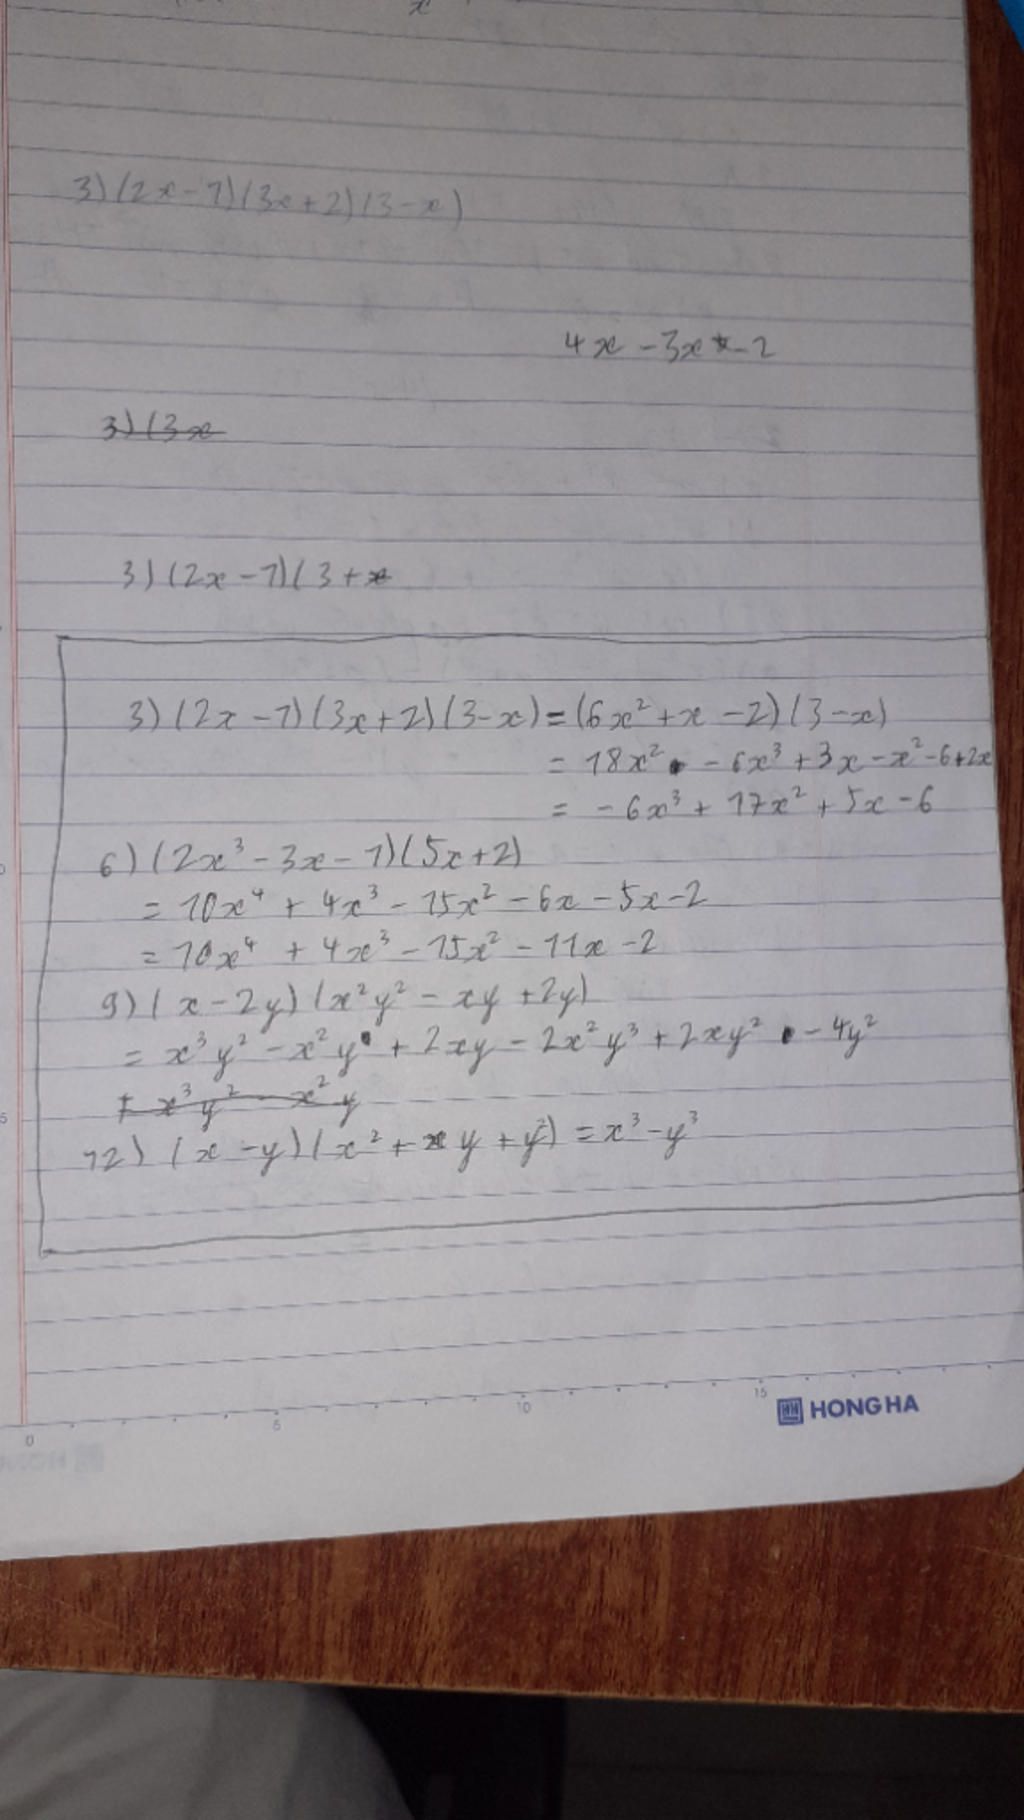 x
3) (2x - 1) (3x + 2) (3 - x)
4x - 3x - 2
3) (3x
3) (2x - 1) (3 + x
3) (2x - 1) (3x + 2) (3 - x) = (6x² + x - 2) (3 - x)
= 18x² - 6x³ + 3x - x² - 6 + 2x
= - 6x³ + 17x² + 5x - 6
6) (2x³ - 3x - 1) (5x + 2)
= 10x⁴ + 4x³ - 15x² - 6x - 5x - 2
= 10x⁴ + 4x³ - 15x² - 11x - 2
9) (x - 2y) (x²y² - xy + 2y)
= x³y² - x²y + 2xy - 2x²y³ + 2xy² - 4y²
+ x³y² - x²y
12) (x - y) (x² + xy + y²) = x³ - y³
0 5 10 15
HONG HA